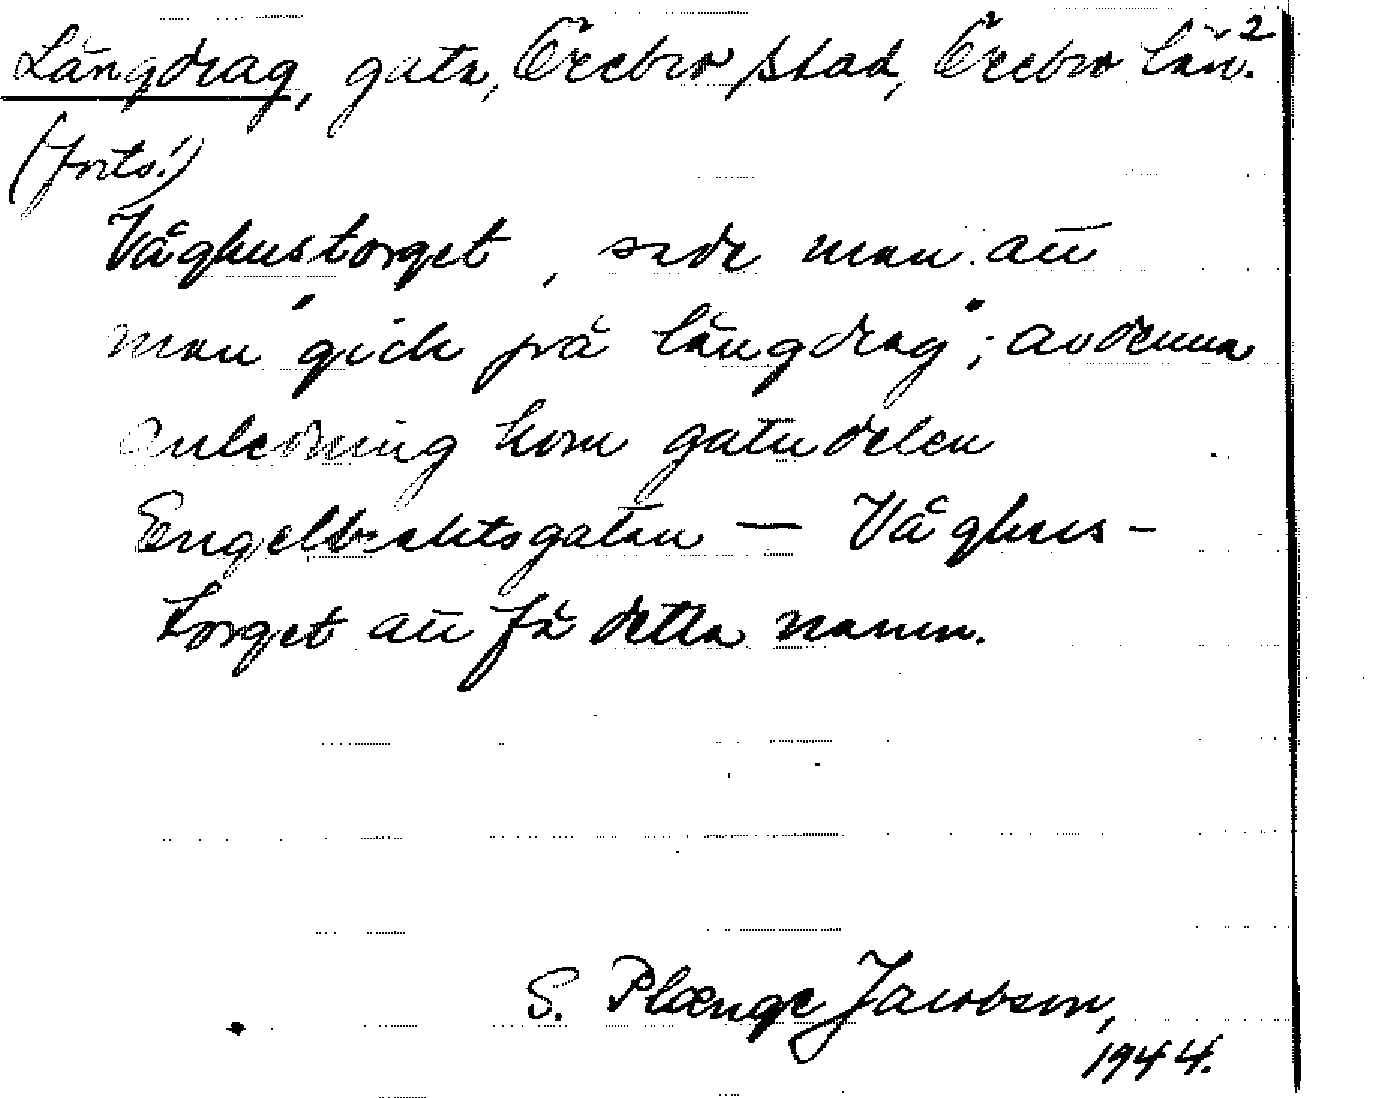 Långdrag, gata, Örebro stad, Örebro län. 2
(forts.)
Våghustorget, sade man att
man "gick på långdrag"; av denna
anledning kom gatudelen
Engelbrektsgatan — Våghus-
torget att få detta namn.
S. Plænge Jacobson,
1944.